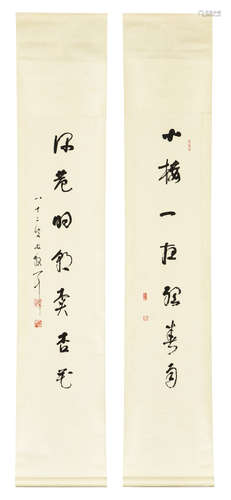 小樓一夜聽春雨
深巷明朝賣杏花
八十二叟